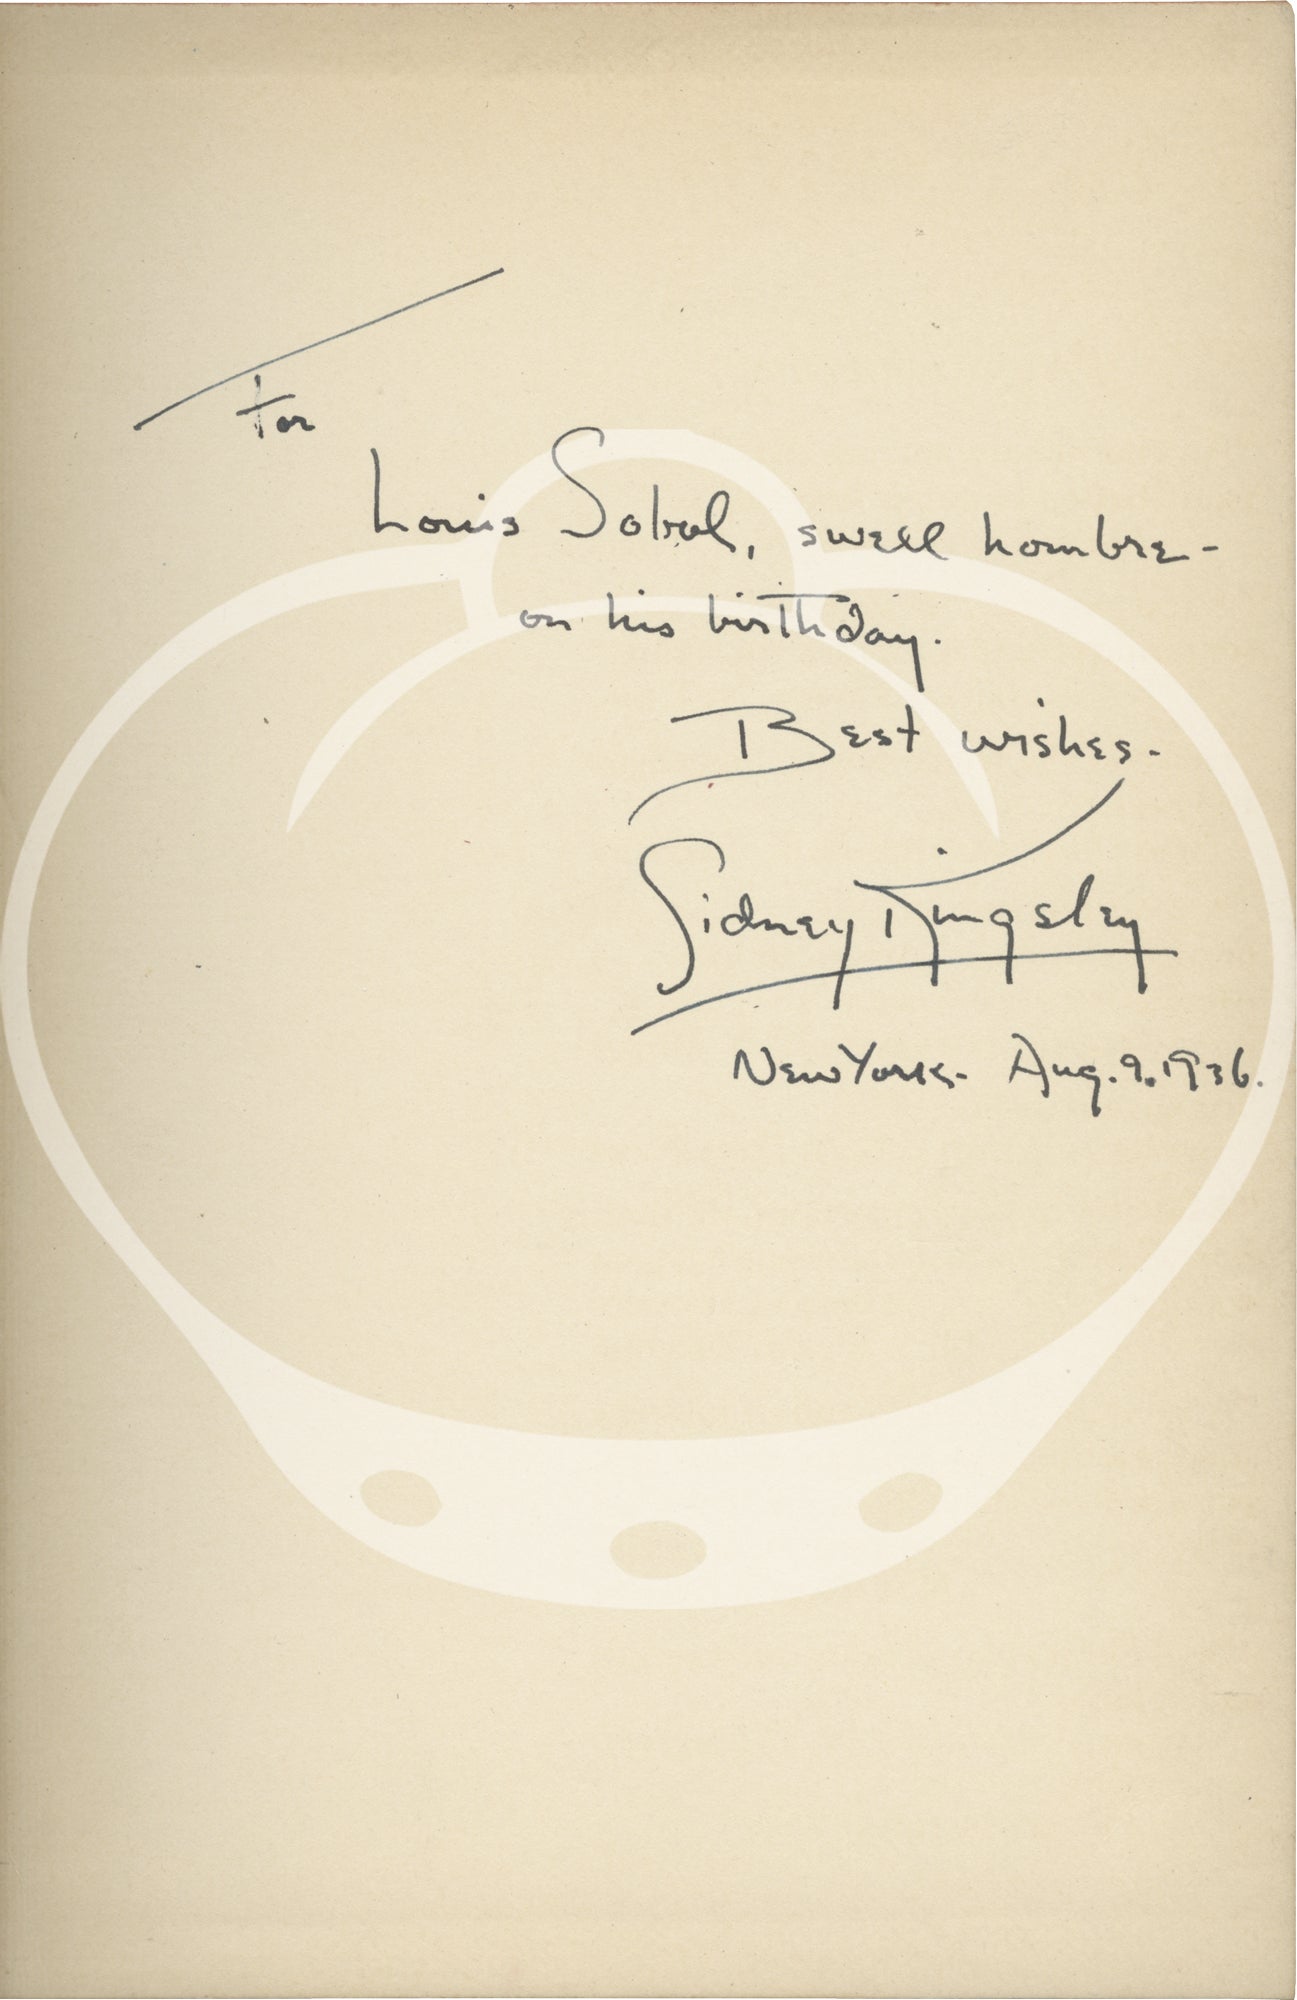 For
Louis Sobol, swell hombre-
on his birthday.
Best wishes-
Sidney Kingsley
New York- Aug. 9. 1936.